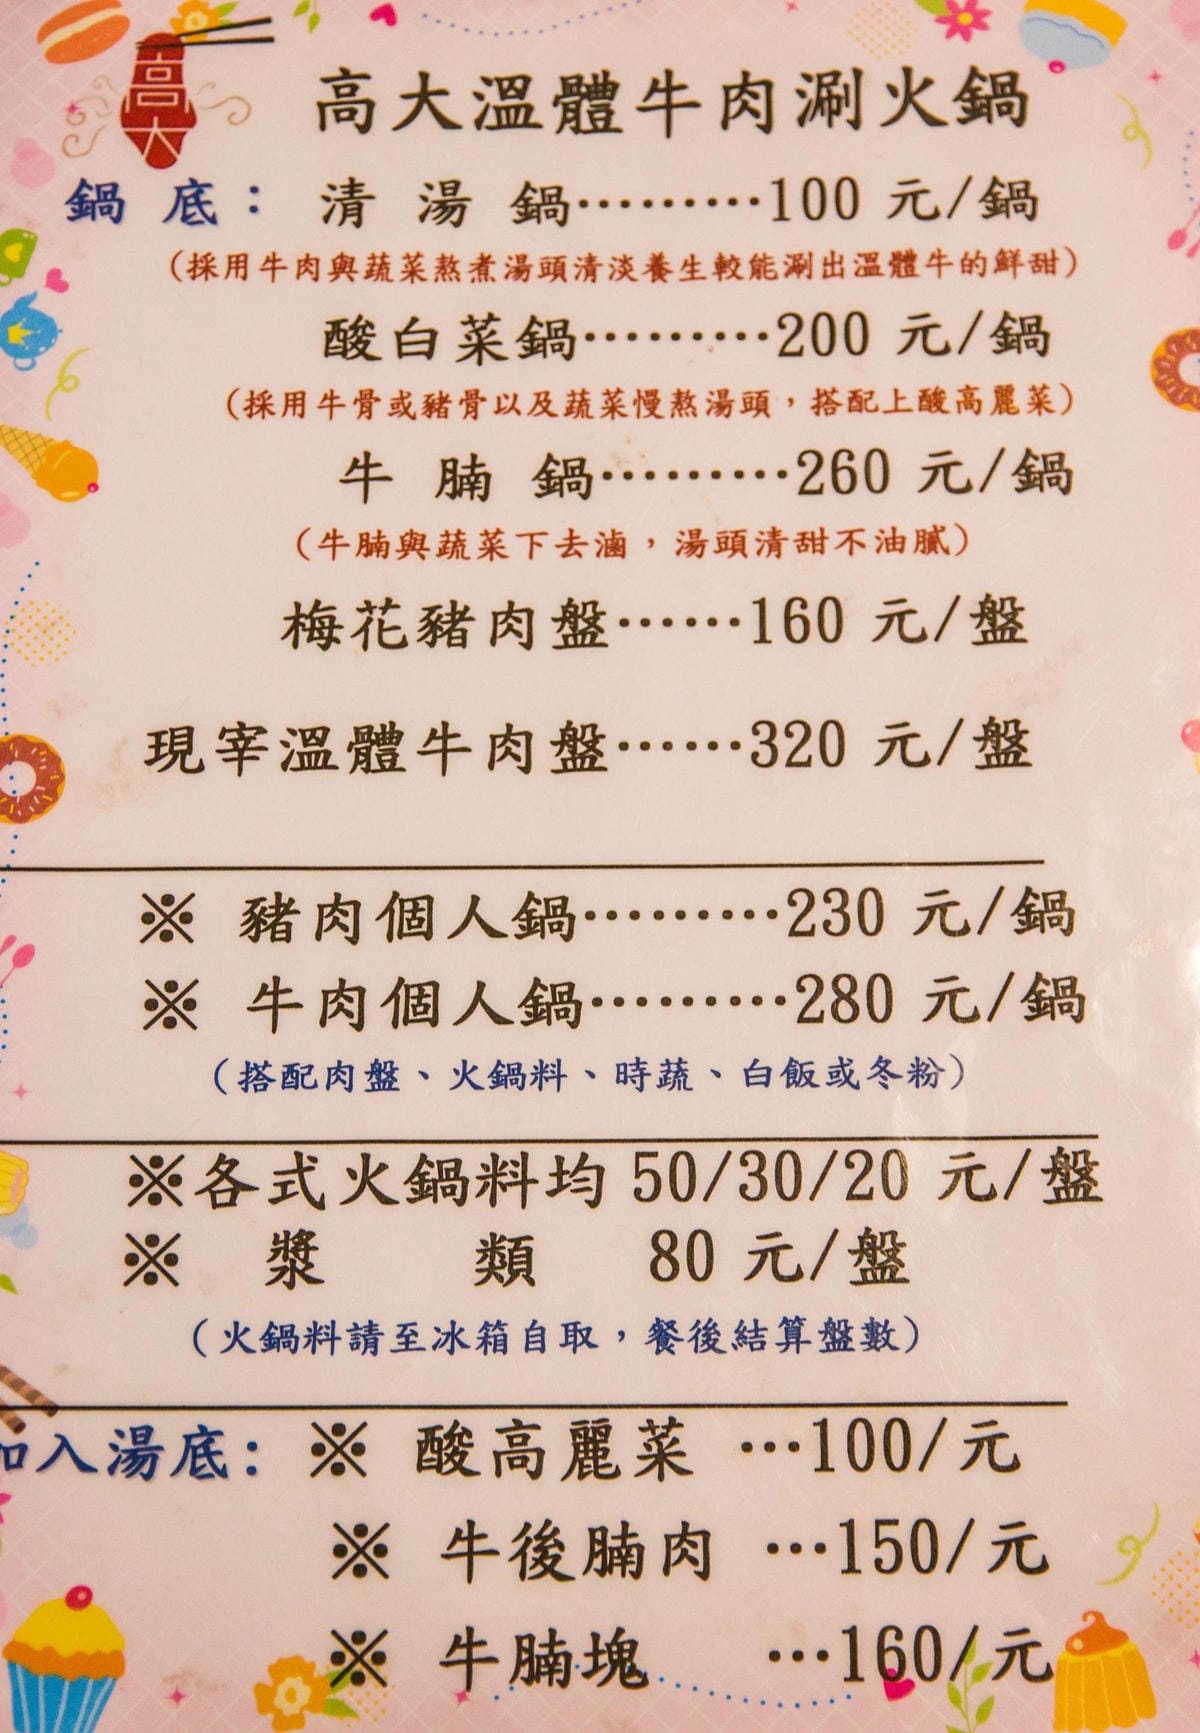 高大
高大溫體牛肉涮火鍋
鍋 底： 清 湯 鍋………100 元/鍋
（採用牛肉與蔬菜熬煮湯頭清淡養生較能涮出溫體牛的鮮甜）
酸白菜鍋………200 元/鍋
（採用牛骨或豬骨以及蔬菜慢熬湯頭，搭配上酸高麗菜）
牛 腩 鍋………260 元/鍋
（牛腩與蔬菜下去滷，湯頭清甜不油膩）
梅花豬肉盤……160 元/盤
現宰溫體牛肉盤……320 元/盤
※ 豬肉個人鍋………230 元/鍋
※ 牛肉個人鍋………280 元/鍋
（搭配肉盤、火鍋料、時蔬、白飯或冬粉）
※各式火鍋料均 50/30/20 元/盤
※ 漿 類 80 元/盤
（火鍋料請至冰箱自取，餐後結算盤數）
加入湯底: ※ 酸高麗菜 …100/元
※ 牛後腩肉 …150/元
※ 牛腩塊 …160/元